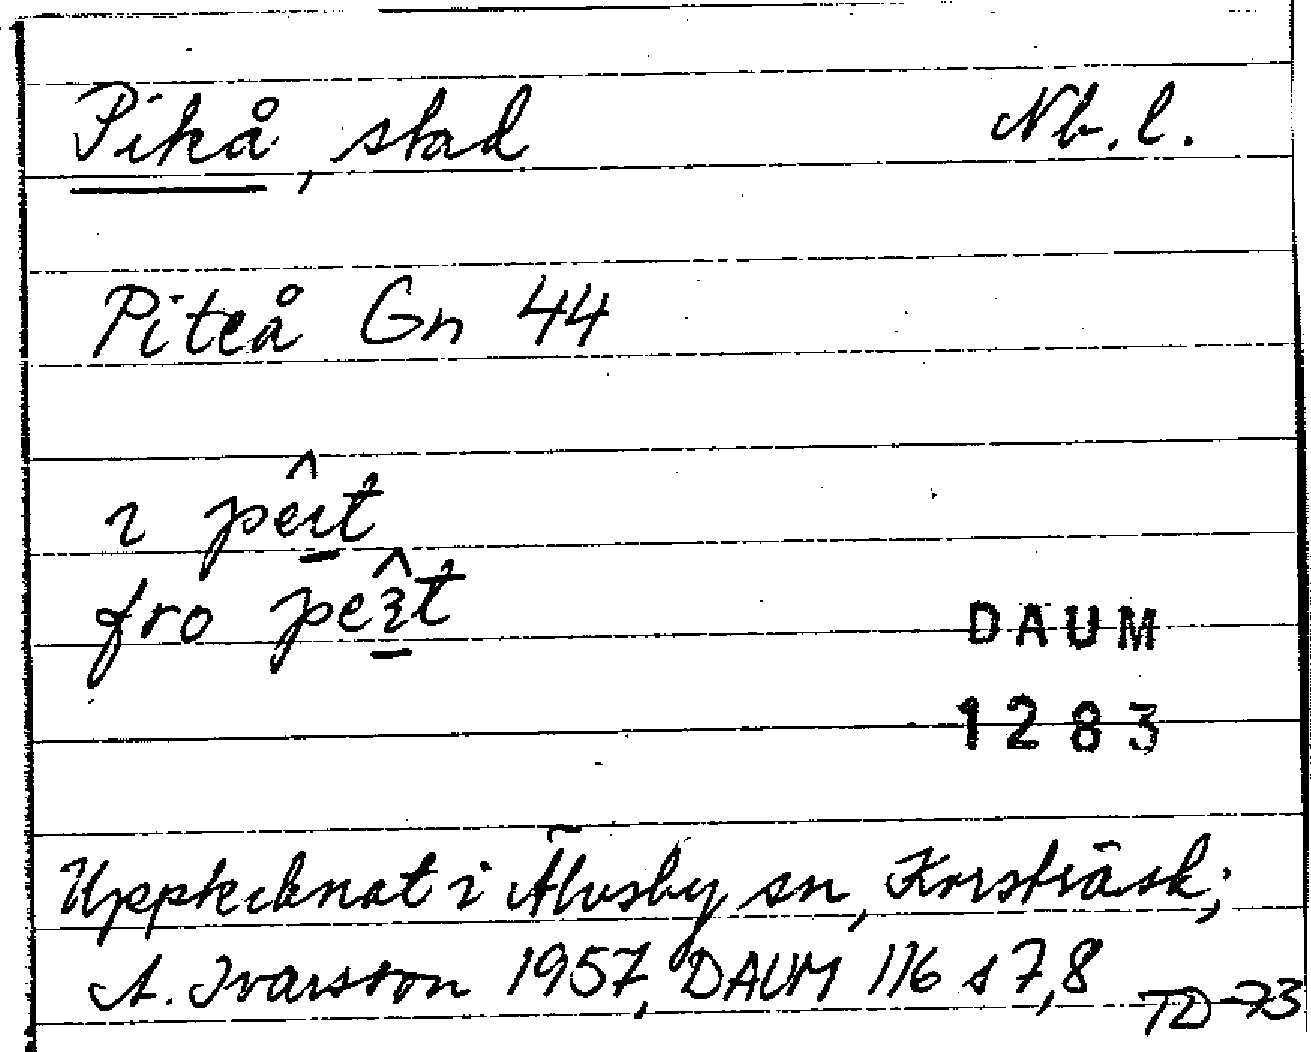 Piteå, stad Nb. l.
Piteå Gn 44
i pêıt
fro
DAUM
1283
Upptecknat i Älvsby sn, Korsträsk;
A. Ivarsson 1957, DAUM 116 s 7,8
TD-73